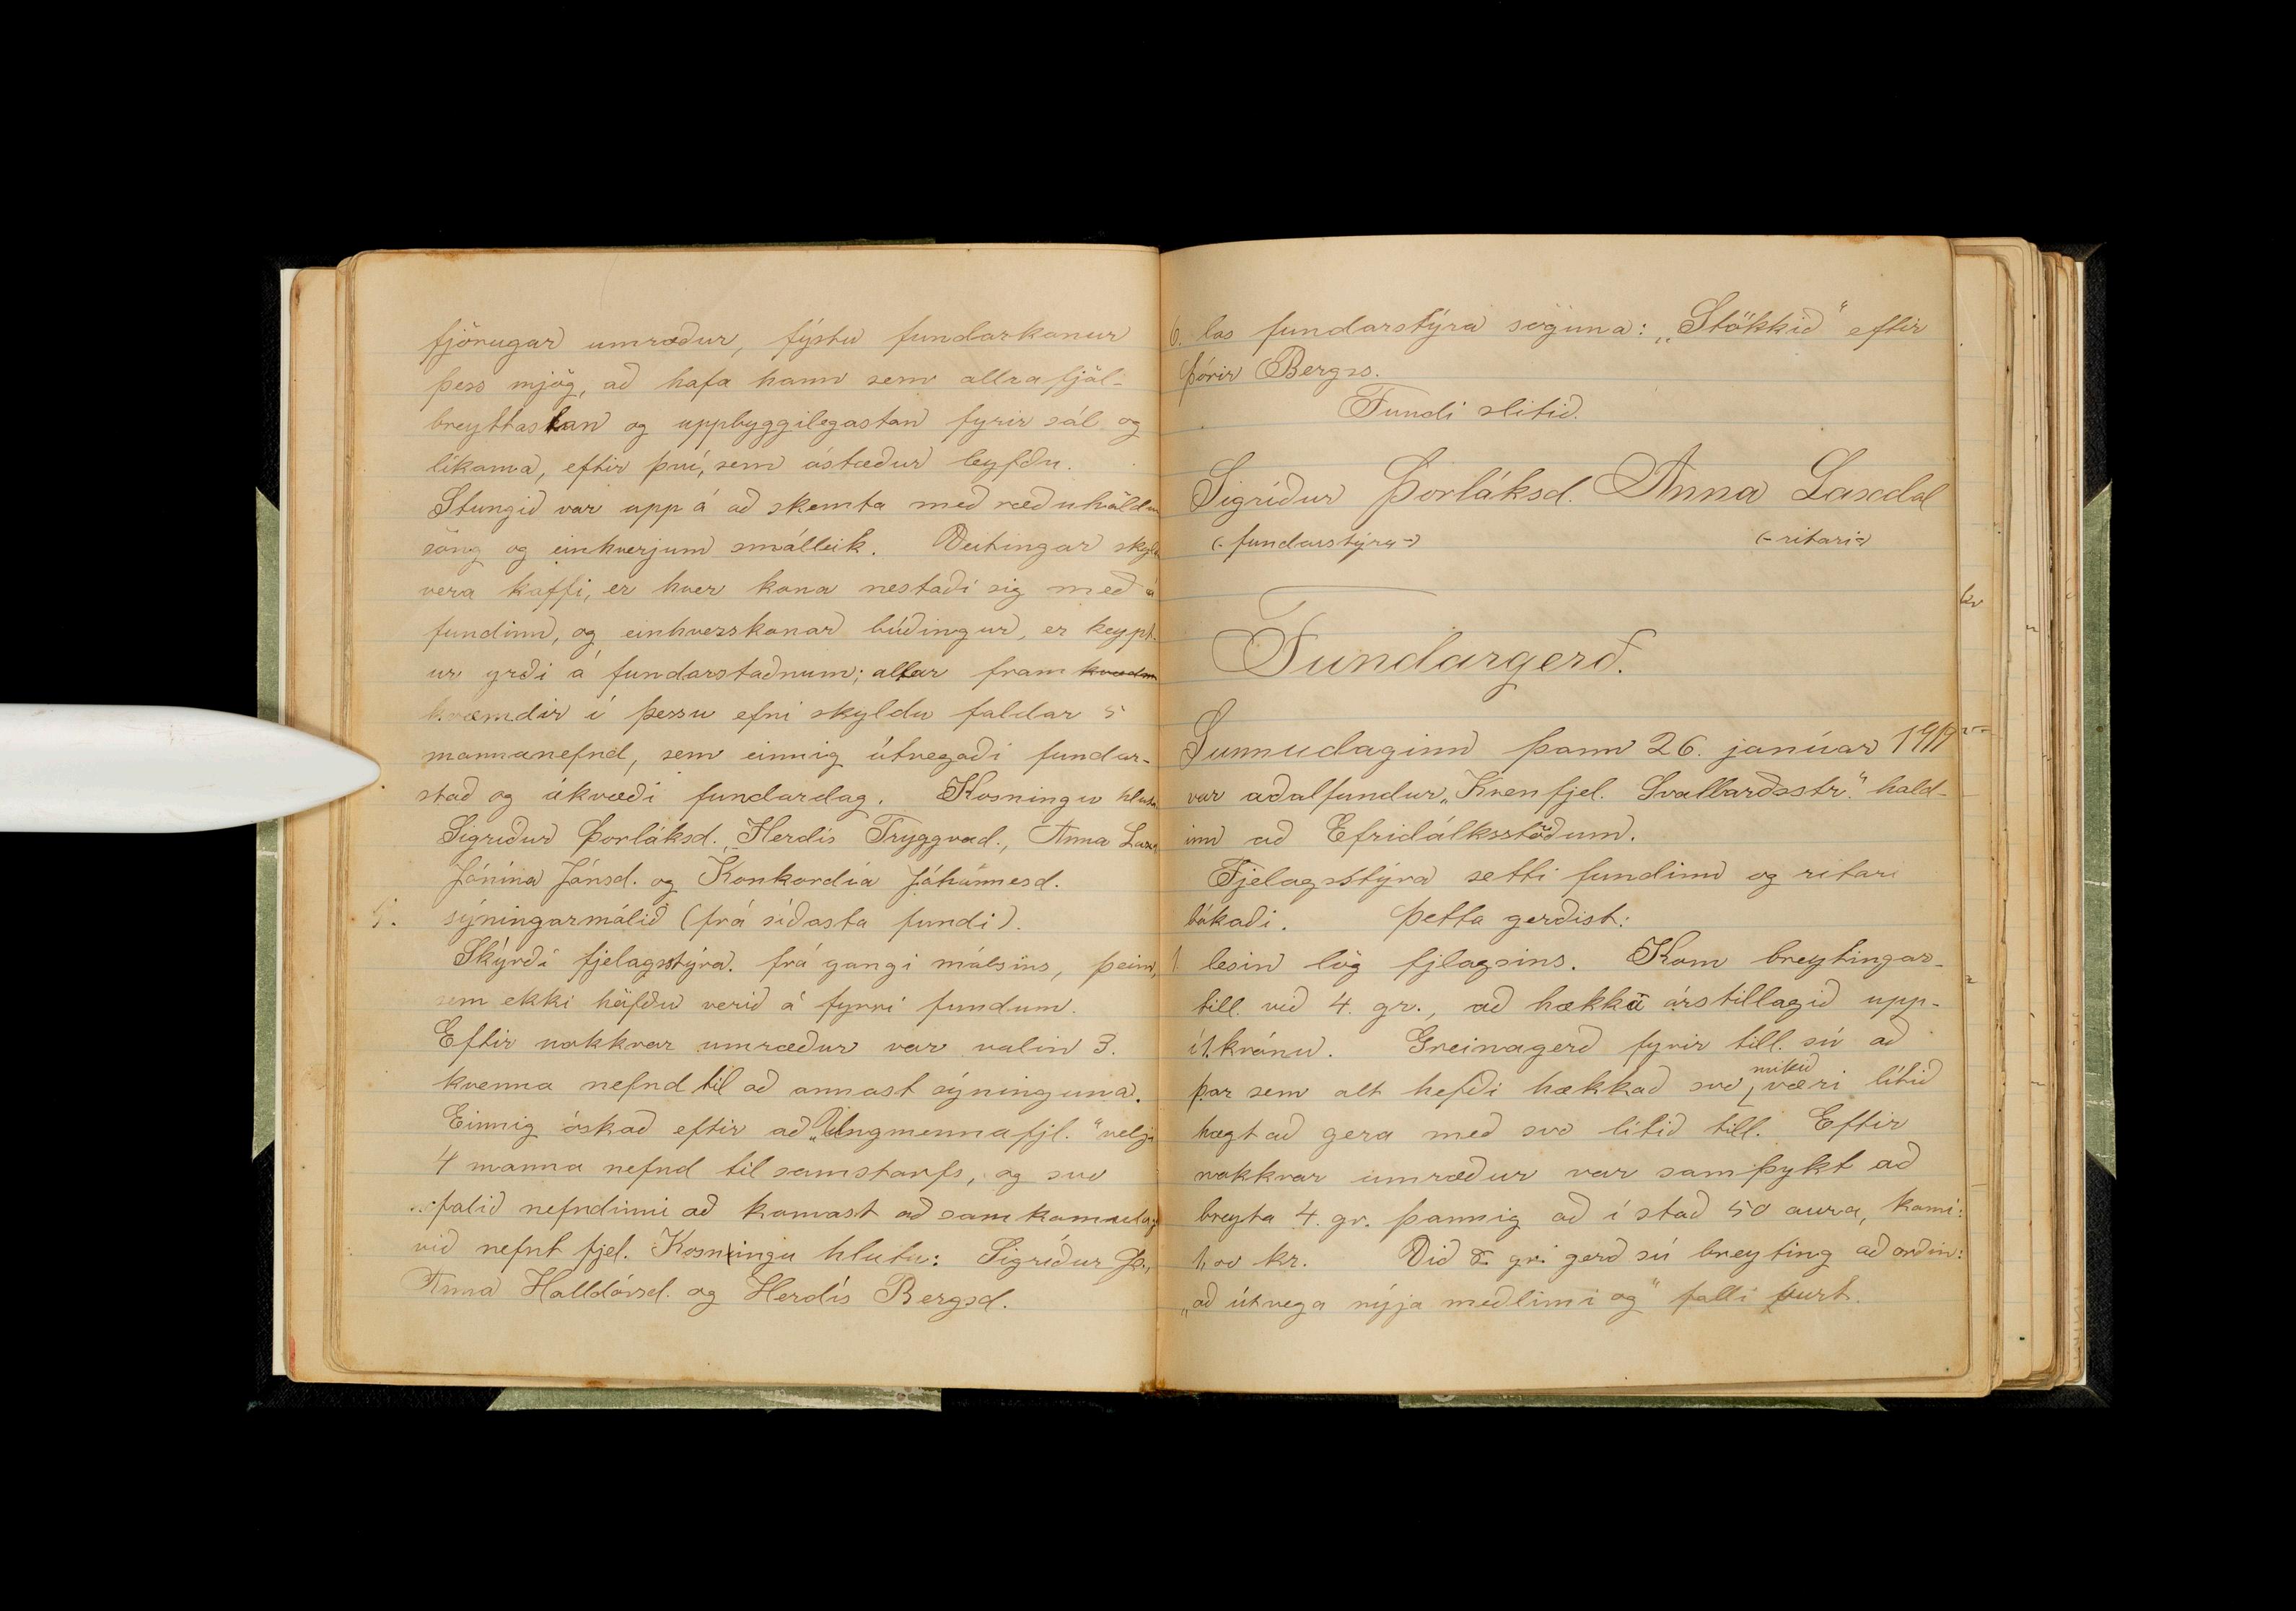 fjörugar umræður, fýstu fundarkonur
þess mjög, að hafa hann sem allra fjöl-
breyttastan og uppbyggilegastan fyrir sál og
líkama, eftir því, sem ástæður leyfðu.
Stungið var upp á að skemta með ræðuhöldum
söng og einhverjum smálleik. Veitingar skyldu
vera kaffi, er hver kona nestaði sig með á
fundinn, og einhverskonar búðingur, er keypt-
ur yrði á fundarstaðnum; allar fram
kvæmdir í þessu efni skyldu faldar 5
mannanefnd, sem einnig útvegaði fundar-
stað og ákvæði fundardag. Kosningu hlutu
Sigríður Þorláksd., Herdís Tryggvad., Anna Lax
Jónína Jónsd. og Konkordía Jóhannesd.
5. sýningarmálið (frá síðasta fundi).
Skýrði fjelagsstýra frá gangi málsins, þeim,
sem ekki höfðu verið á fyrri fundum.
Eftir nokkrar umræður var valin 3.
kvenna nefnd til að annast sýninguna.
Einnig óskað eftir að „Ungmennafjl." velji
4 manna nefnd til samstarfs, og svo
falið nefndinni að komast að samkomulagi
við nefnt fjel. Kosningu hlutu: Sigríður Þ.,
Anna Halldórsd. og Herdís Bergsd.
6. las fundarstýra söguna: „Stökkið" eftir
Þórir Bergss.
Fundi slitið.
Sigríður Þorláksd. Anna Laxdal
(-fundarstýra-) (-ritari-)
Fundargerð.
Sunnudaginn þann 26. janúar 1919
var aðalfundur „Kvenfjel. Svalbarðsstr." hald-
inn að Efridálksstöðum.
Fjelagsstýra setti fundinn og ritari
bókaði. Þetta gerðist:
1 lesin lög fjlagsins. Kom breytingar-
till. við 4. gr., að hækka árstillagið upp-
í 1. krónu. Greinagerð fyrir till. sú að
þar sem alt hefði hækkað svo mikið væri lítið
hægt að gera með svo lítið till. Eftir
nokkrar umræður var samþykt að
breyta 4. gr. þannig að í stað 50 aura, komi:
1,00 kr. Við 8. gr. gerð sú breyting að orðin:
„að útvega nýja meðlimi og" falli burt.